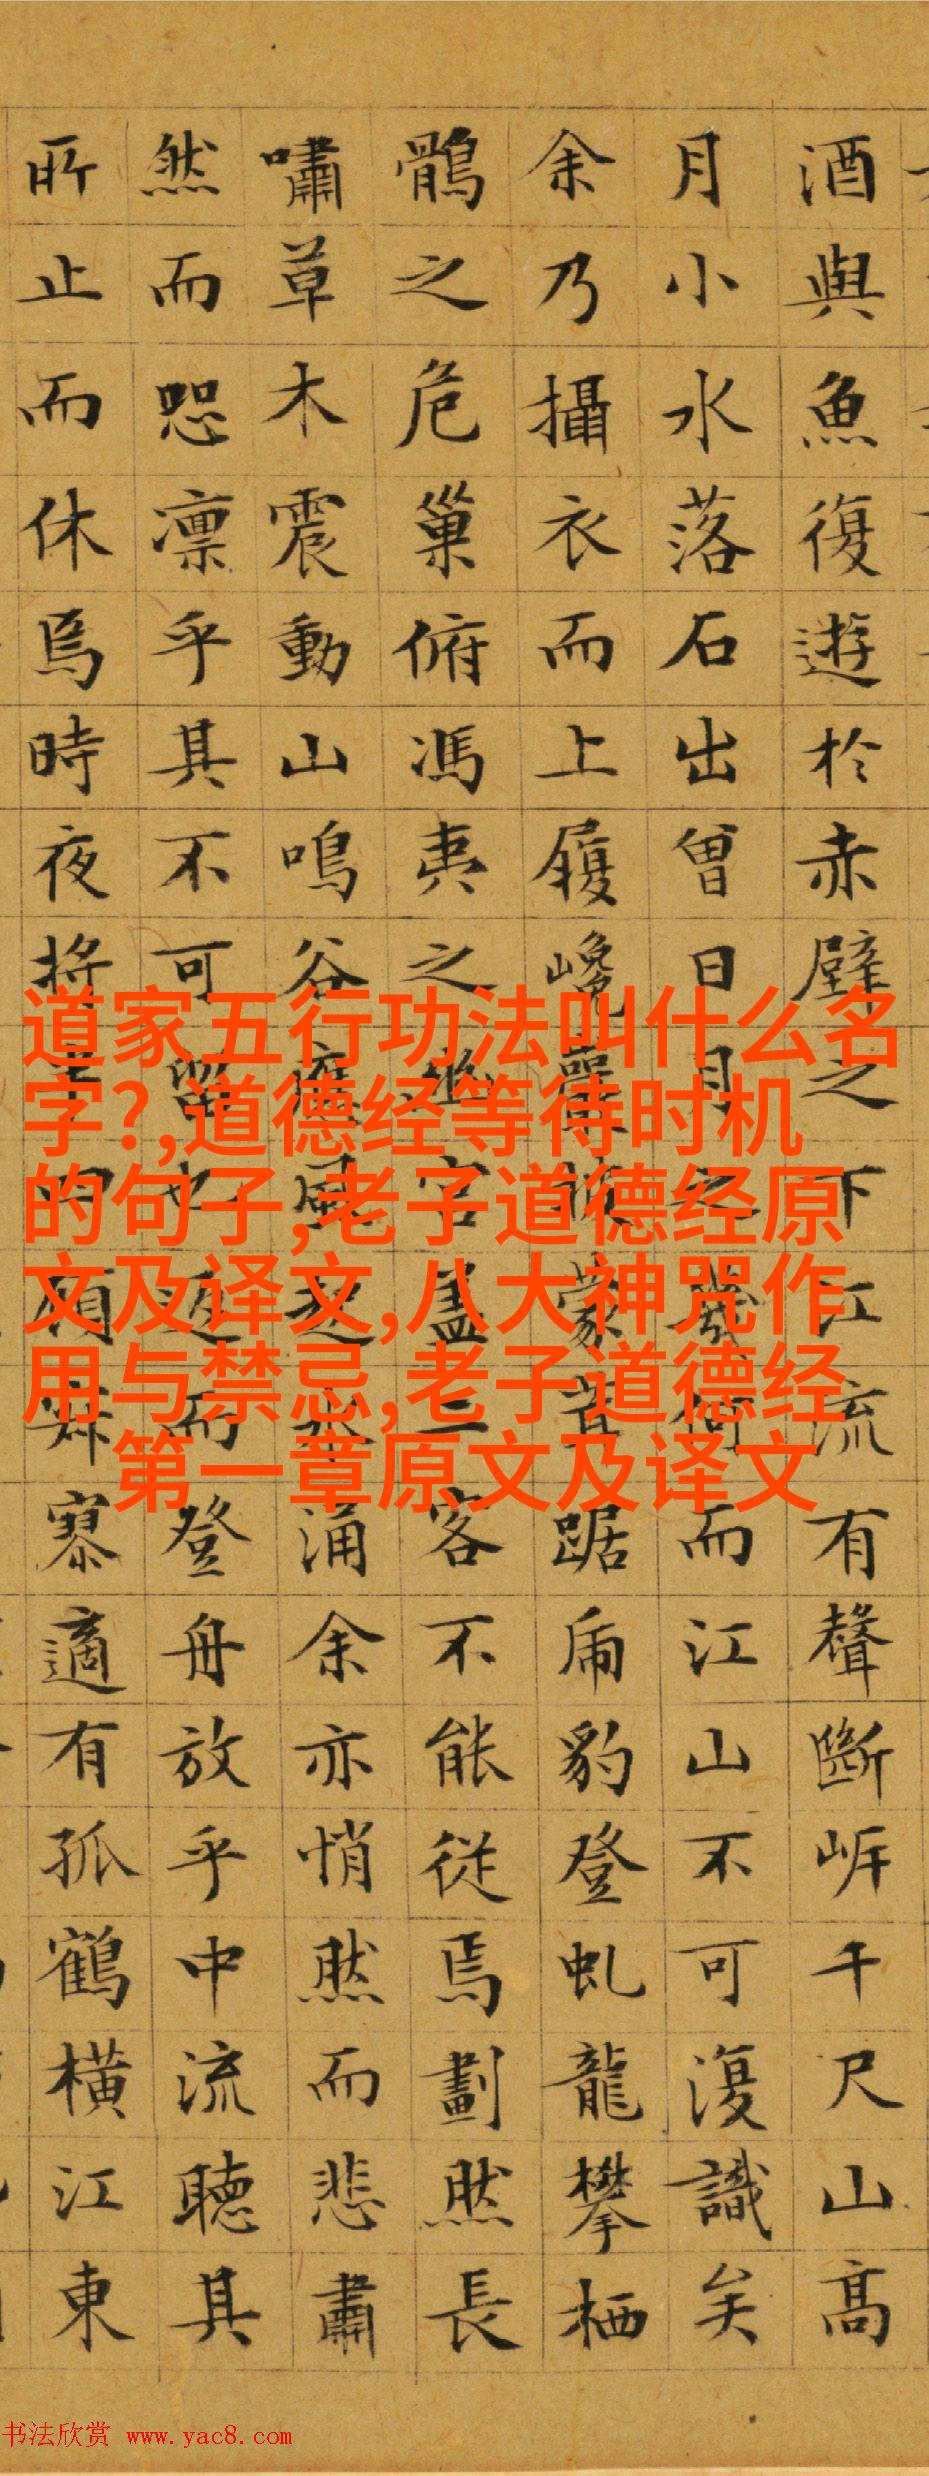 酒與魚復遊於赤壁之下江流有聲斷岸千尺山高
月小水落石出曾日月之幾何而江山不可復識矣
余乃攝衣而上履巉巖披蒙茸踞虎豹登虬龍攀栖
鶻之危巢俯馮夷之幽宮蓋二客不能從焉劃然長
嘯草木震動山鳴谷應風起水涌余亦悄然而悲肅
然而恐凛乎其不可留也返而登舟放乎中流聽其
所止而休焉時夜將半四顧寂寥適有孤鶴橫江東
道家五行功法叫什么名
字?,道德经等待时机
的句子,老子道德经原
文及译文,八大神咒作
用与禁忌,老子道德经
第一章原文及译文
书法欣赏 www.yac8.com